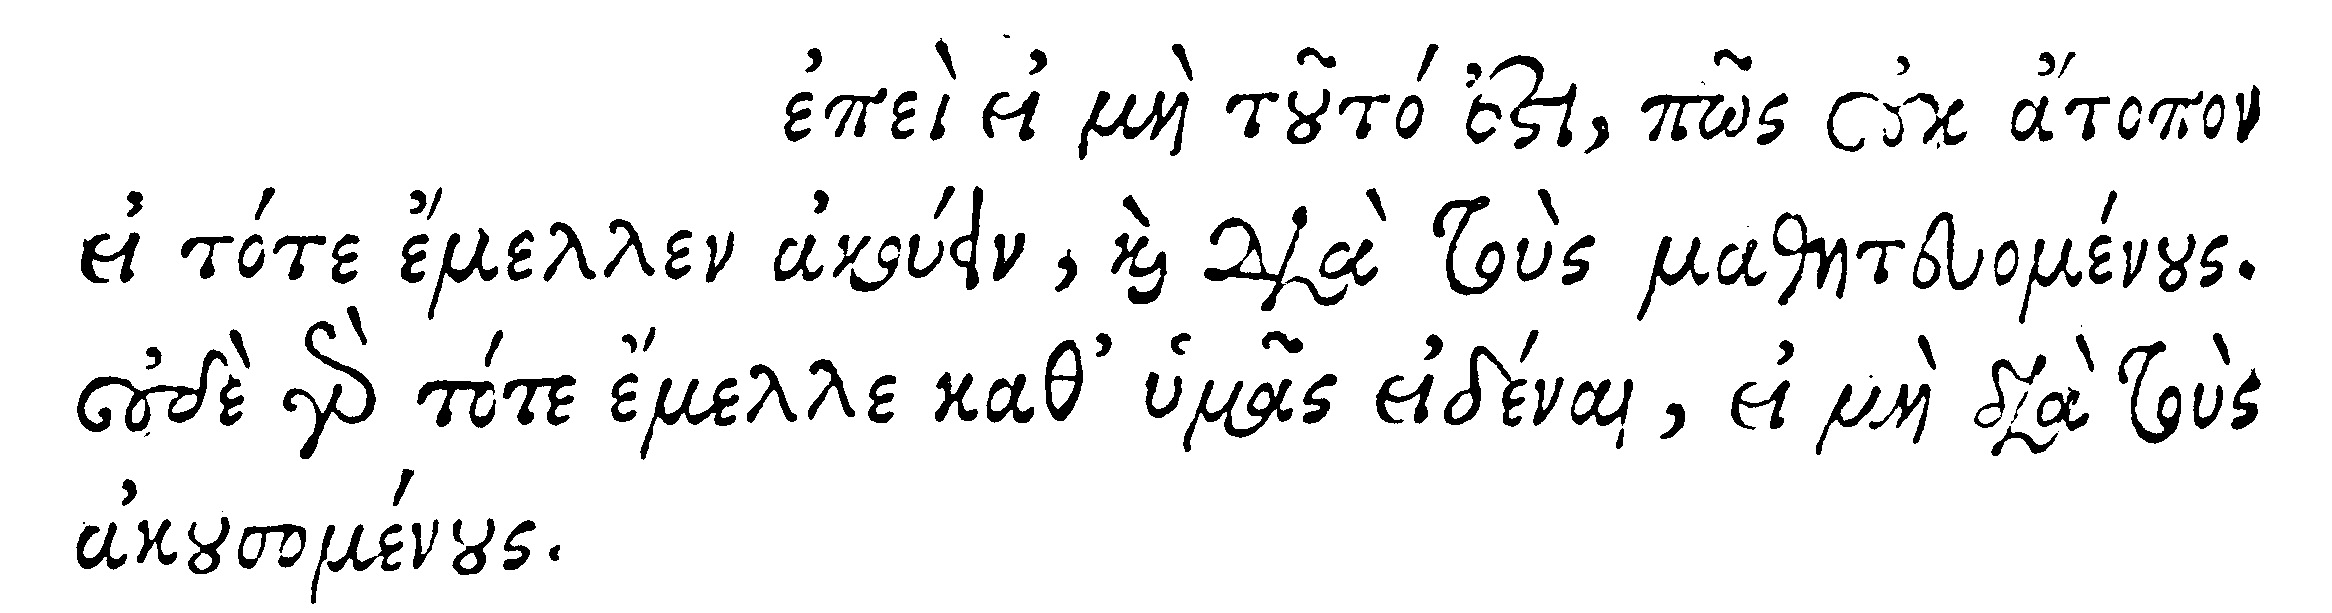 ἐπεὶ εἰ μὴ τοῦτό ἐστι, πῶς οὐκ ἄτοπον
εἰ τότε ἔμελλεν ἀκούειν, καὶ διὰ τοὺς μαθητευομένους.
οὐδὲ γὰρ τότε ἔμελλε καθ’ ὑμᾶς εἰδέναι, εἰ μὴ διὰ τοὺς
ἀκουσομένους.